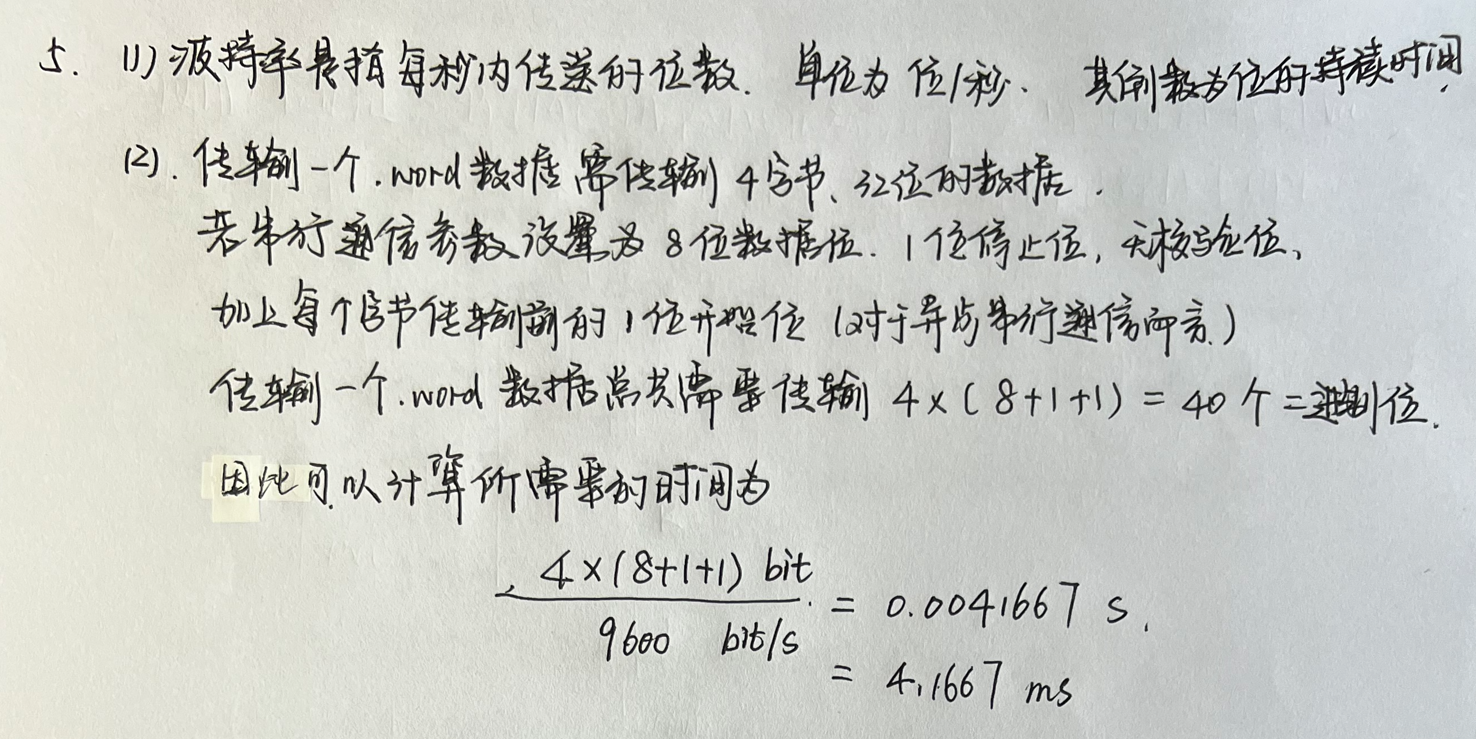 5. (1) 波特率是指每秒内传送的位数. 单位为 位/秒. 其倒数为位的持续时间.
(2). 传输一个.word数据需传输4字节、32位的数据.
若串行通信参数设置为8位数据位. 1位停止位, 无校验位、
加上每个字节传输前的1位开始位 (对于异步串行通信而言.)
传输一个.word数据总共需要传输 4×(8+1+1) = 40个二进制位.
因此可以计算所需要的时间为
4×(8+1+1) bit
9600 bit/s
= 0.0041667 s.
= 4.1667 ms